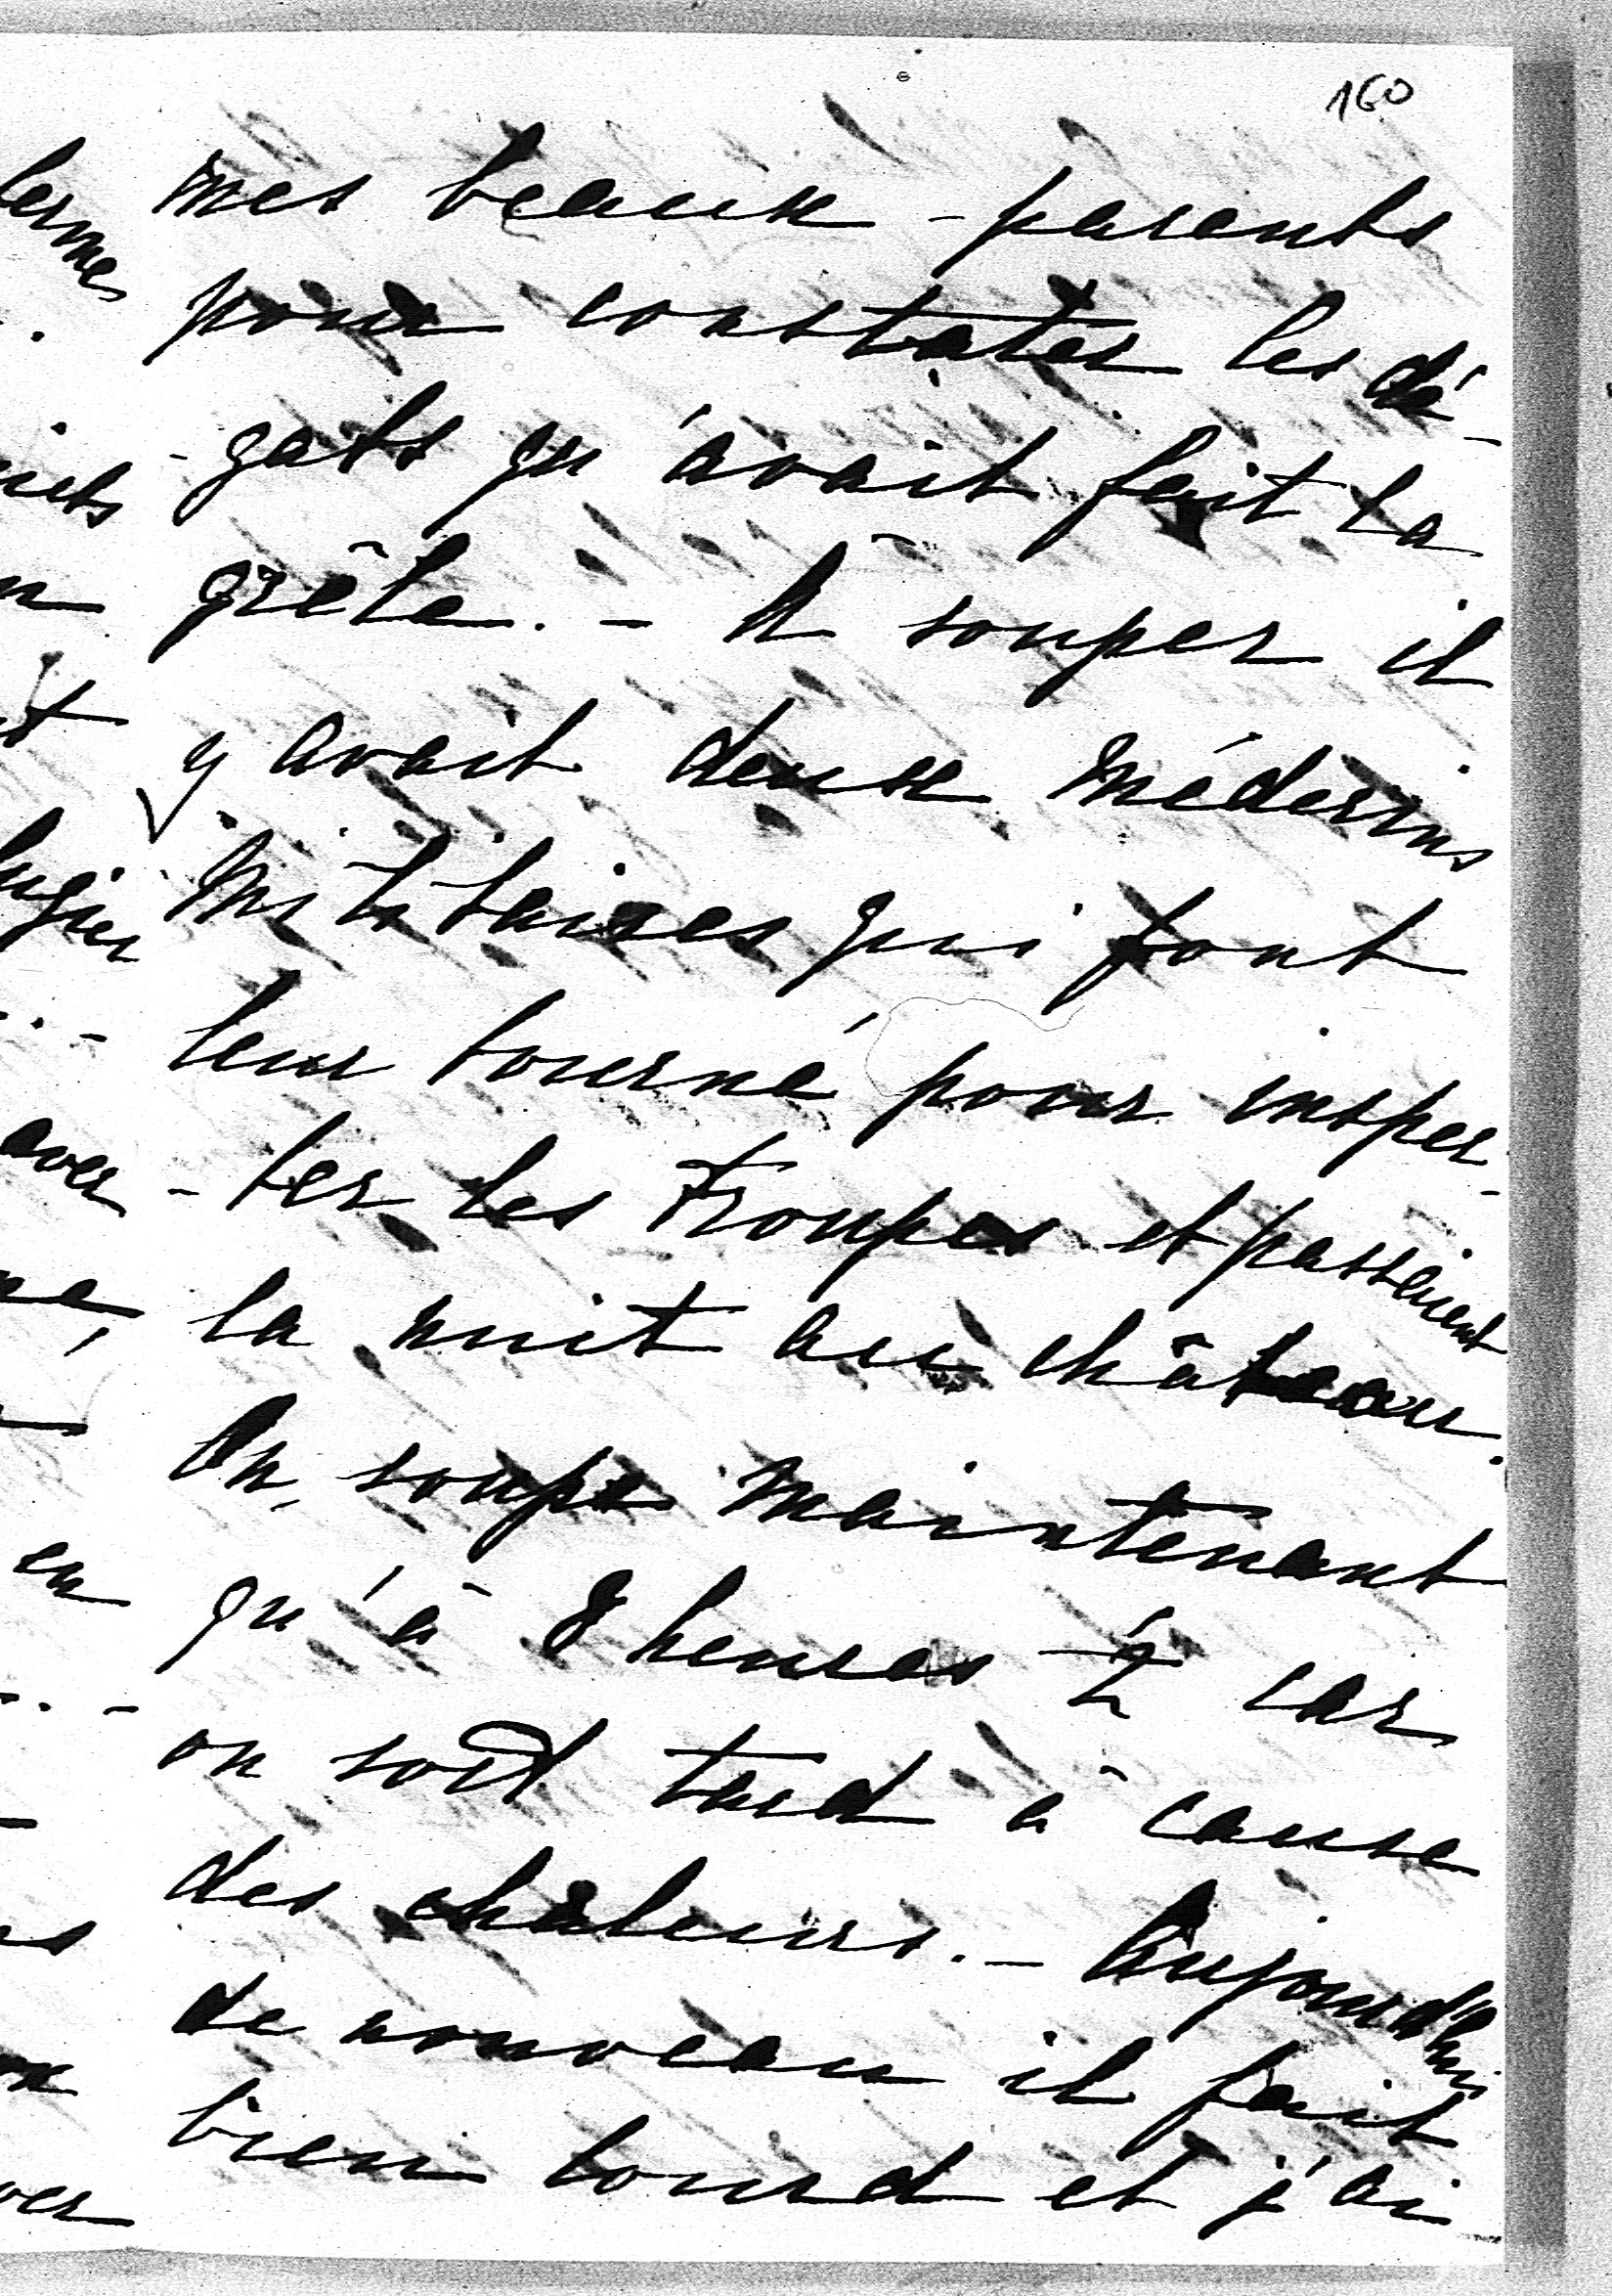 160
mes beaux-parents
pour constater les dé-
-gats qu'avait fait la
grêle. - A souper il
y avait deux médecins
militaires qui font
leur tourné pour inspec-
-ter les troupes et passaient
la nuit au château.
On soupe maintenant
qu'à 8 heures ½ car
on sort tard à cause
des chaleurs. - Aujourd'hui
de nouveau il fait
bien lourd et j'ai